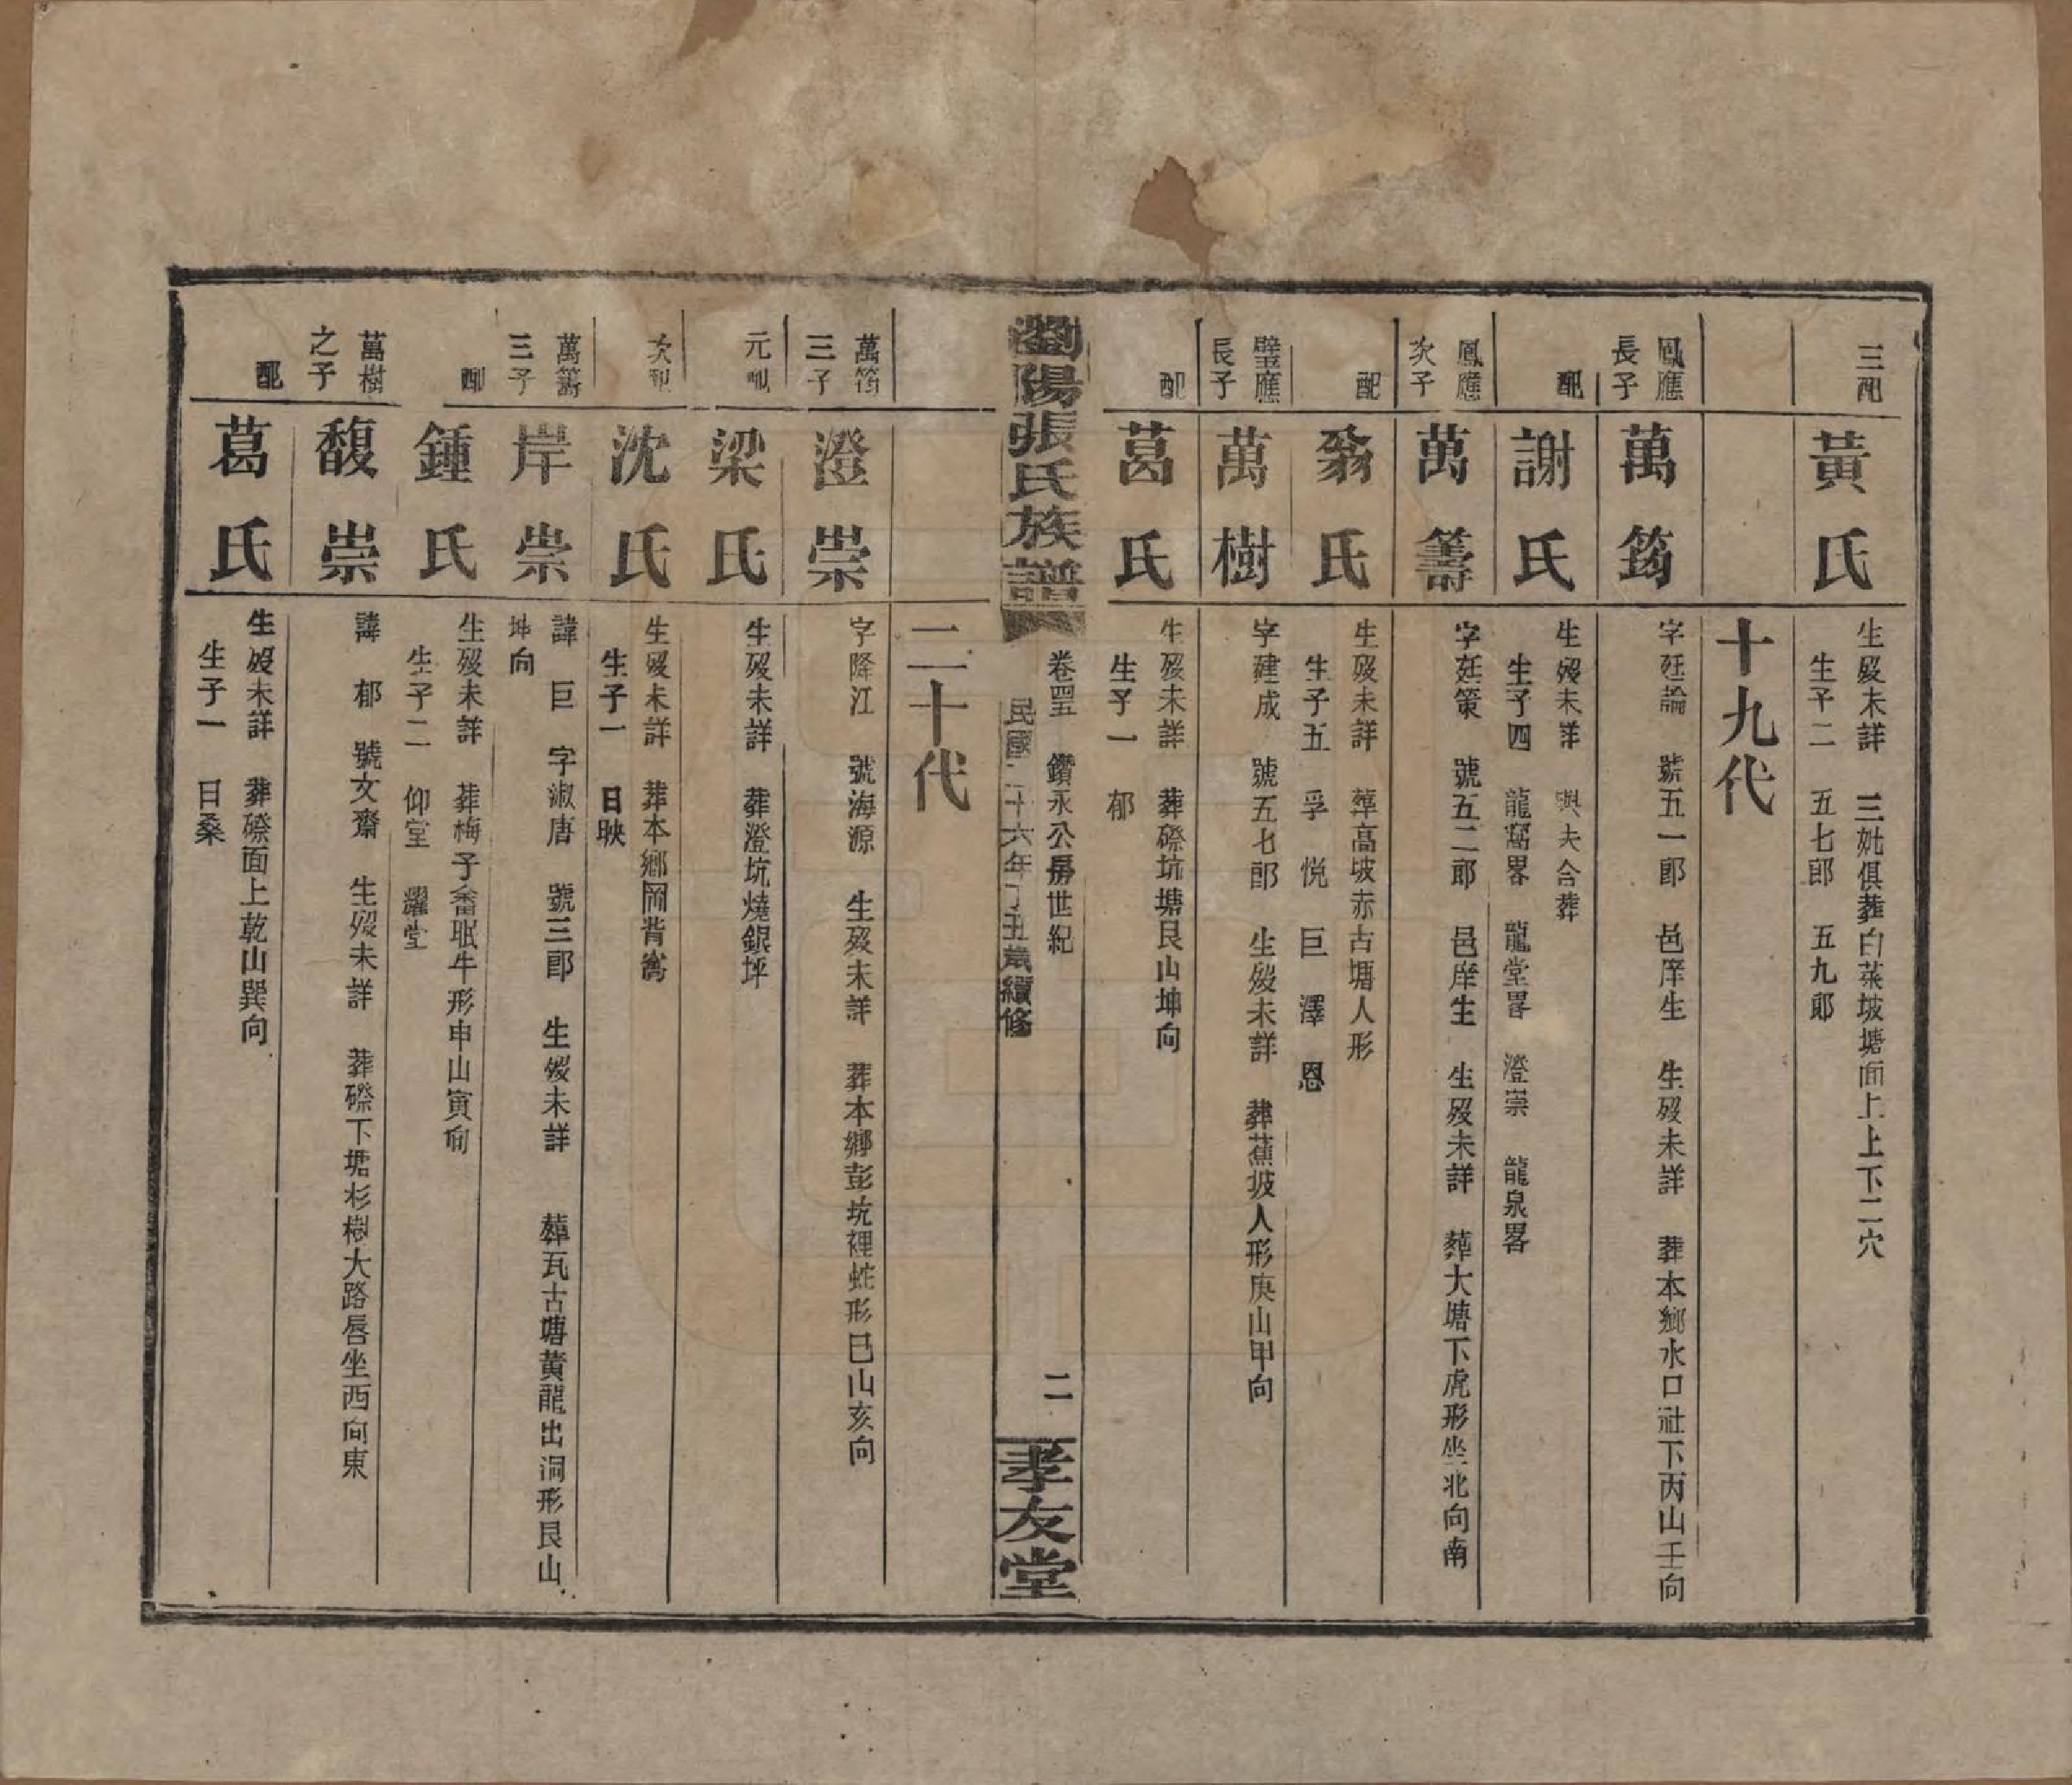 三配
黃氏
生歿未詳　三妣俱葬白菜坡塘面上上下二穴
生子二　五七郎　五九郎
十九代
鳳應
長子
萬筠
字廷論　號五一郎　邑庠生　生歿未詳　葬本鄉水口社下丙山壬向
配
謝氏
生歿未詳　與夫合葬
生子四　龍窩畧　龍堂畧　澄崇　龍泉畧
鳳應
次子
萬籌
字廷策　號五二郎　邑庠生　生歿未詳　葬大塘下虎形坐北向南
配
翁氏
生歿未詳　葬高坡赤古塘人形
生子五　孚　悅　巨　澤　恩
璧應
長子
萬樹
字建成　號五七郎　生歿未詳　葬蕉坡人形庚山甲向
配
葛氏
生歿未詳　葬磜坑塘艮山坤向
生子一　郁
瀏陽張氏族譜
卷四五　鑽永公房世紀　二
民國二十六年丁丑歲續修
孝友堂
二十代
萬筠
三子
澄崇
字降江　號海源　生歿未詳　葬本鄉彭坑裡蛇形巳山亥向
元配
梁氏
生歿未詳　葬澄坑燒銀坪
次配
沈氏
生歿未詳　葬本鄉岡背窩
生子一　日映
萬籌
三子
岸崇
諱巨　字淑唐　號三郎　生歿未詳　葬瓦古塘黃龍出洞形艮山
坤向
配
鍾氏
生歿未詳　葬梅子畬眠牛形申山寅向
生子二　仰堂　灑堂
萬樹
之子
馥崇
諱郁　號文齋　生歿未詳　葬磜下塘杉樹大路唇坐西向東
配
葛氏
生歿未詳　葬磜面上乾山巽向
生子一　日桑